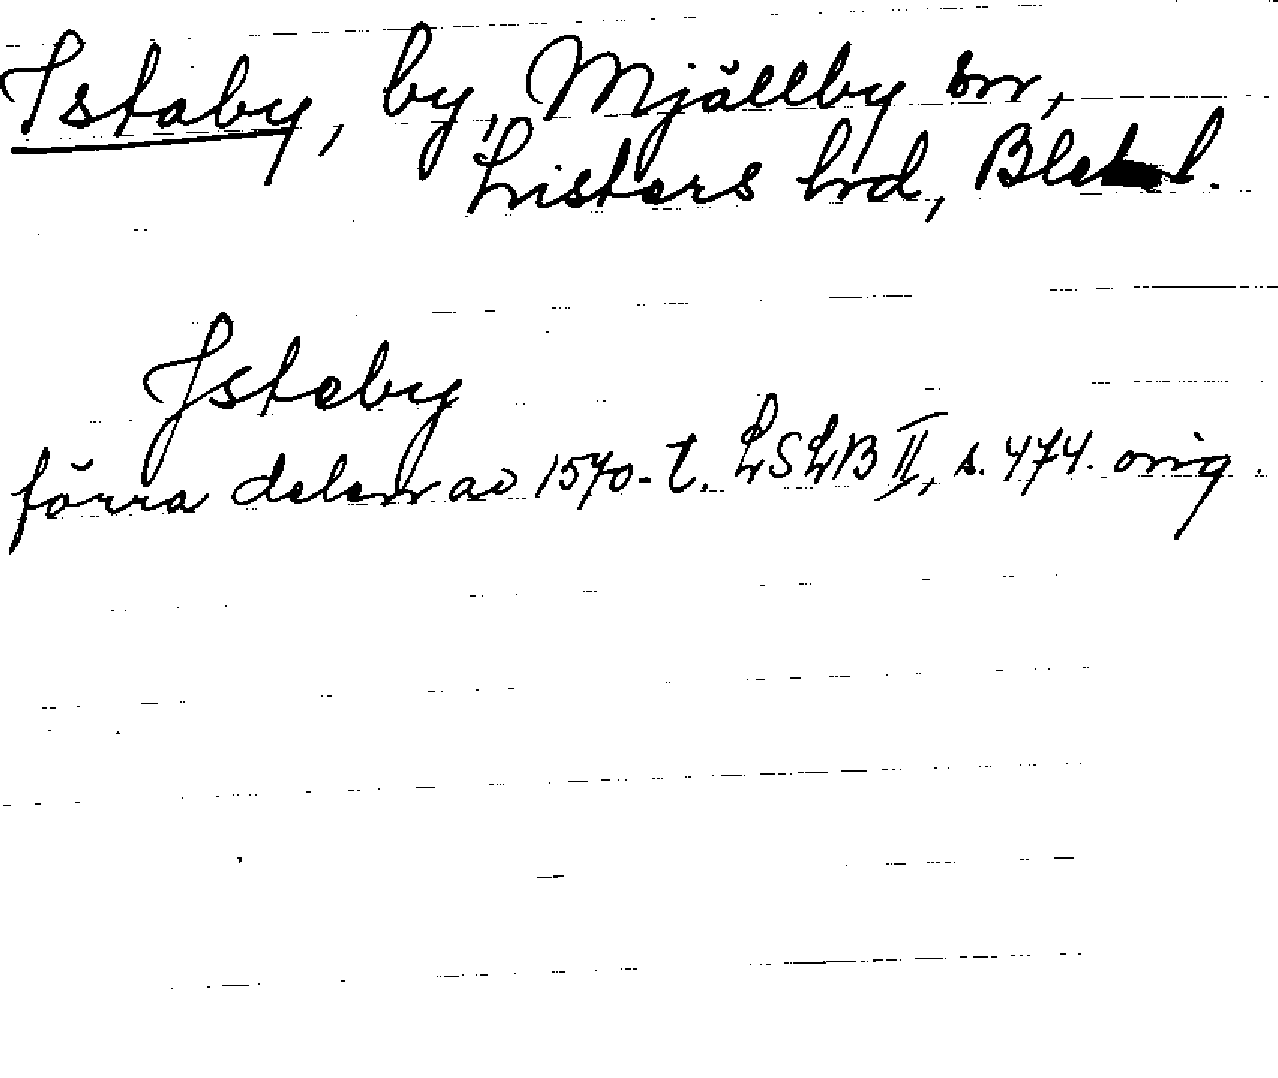 Istaby, by, Mjällby sn,
Listers hrd, Blek. l.
Jstaby
förra delen av 1570-t. LSLB II, s. 474. orig.